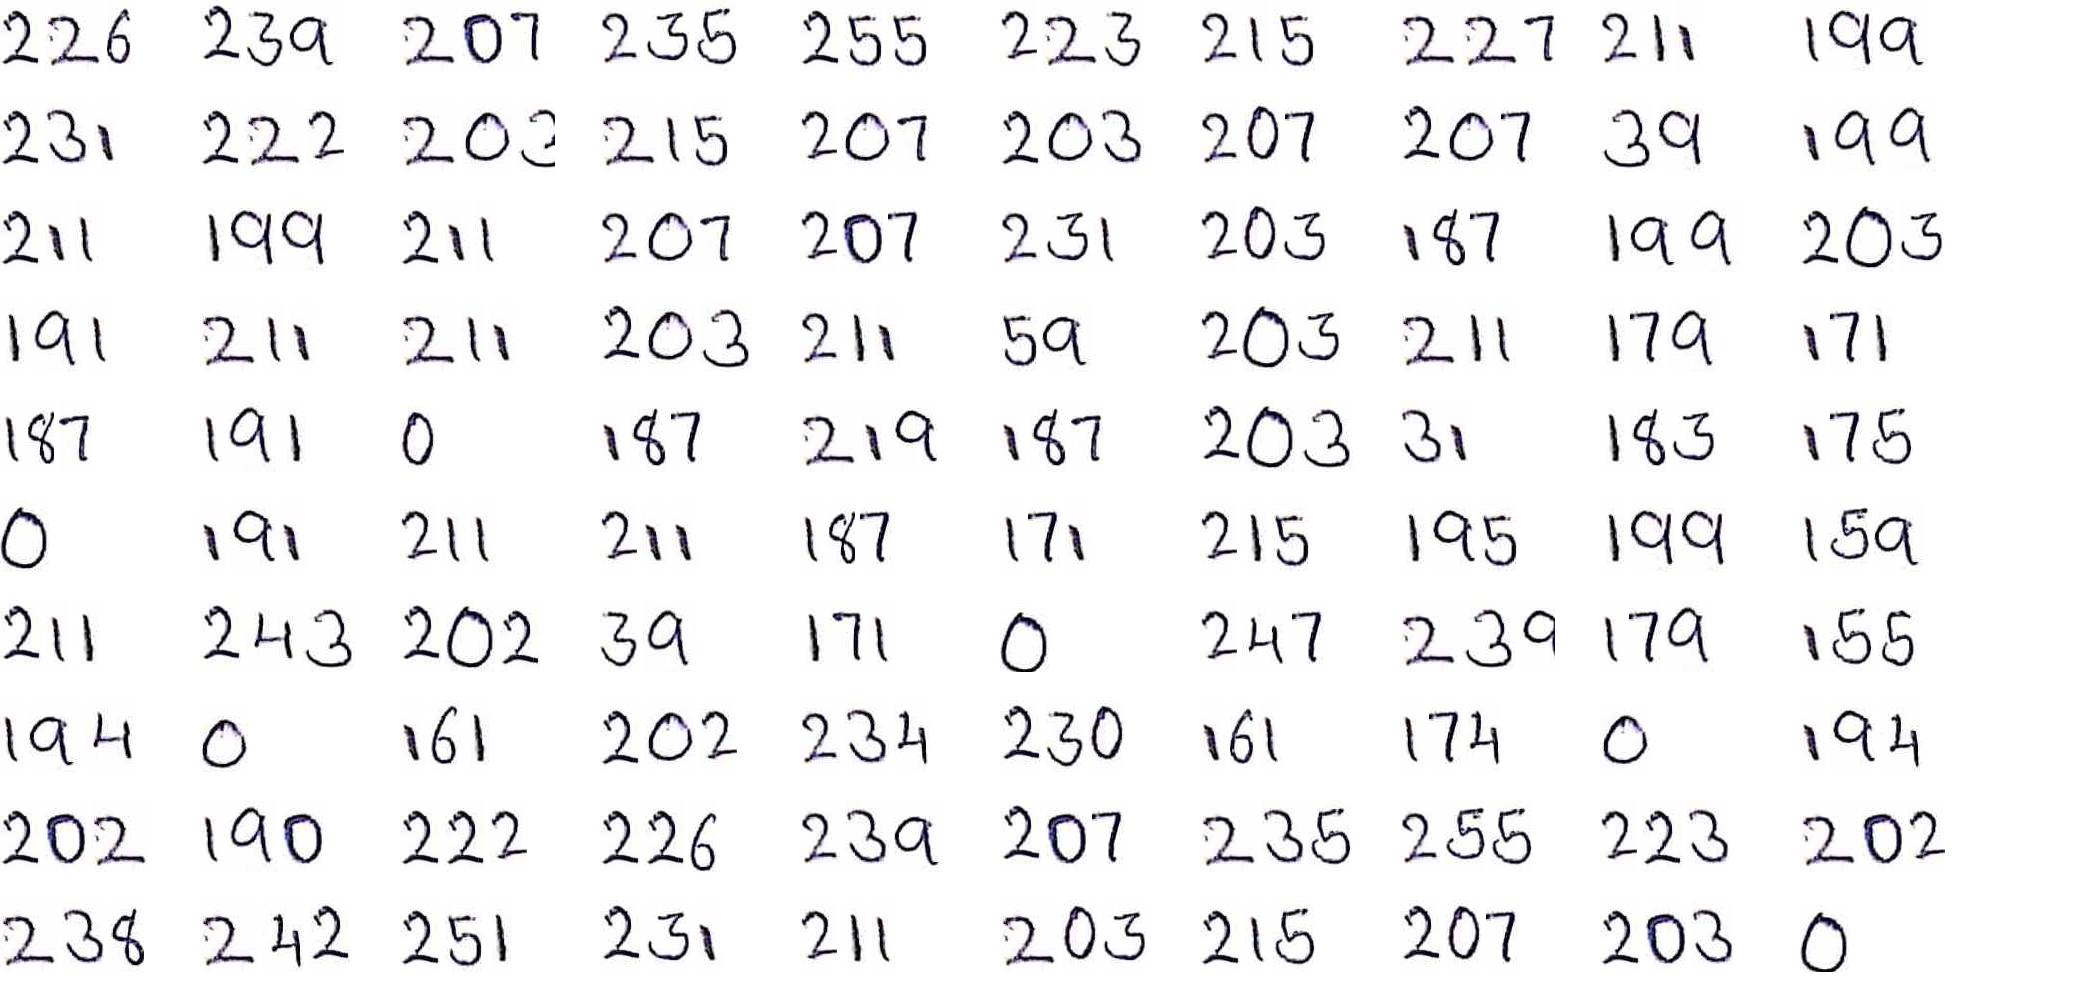 226 239 207 235 255 223 215 227 211 199
231 222 203 215 207 203 207 207 39 199
211 199 211 207 207 231 203 187 199 203
191 211 211 203 211 59 203 211 179 171
187 191 0 187 219 187 203 31 183 175
0 191 211 211 187 171 215 195 199 159
211 243 202 39 171 0 247 239 179 155
194 0 161 202 234 230 161 174 0 194
202 190 222 226 239 207 235 255 223 202
238 242 251 231 211 203 215 207 203 0